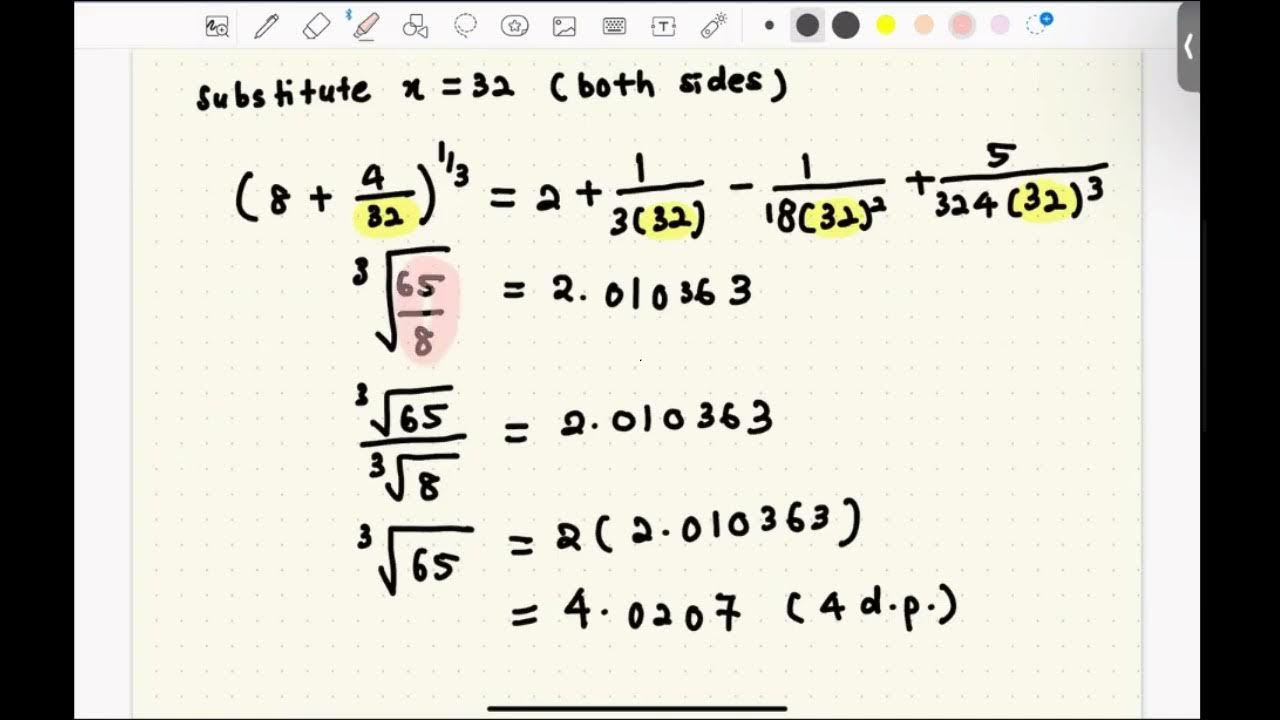 substitute x = 32 (both sides)
(8 + 4/32)^1/3 = 2 + 1/3(32) - 1/18(32)² + 5/324(32)³
³√65/8 = 2.010363
³√65/³√8 = 2.010363
³√65 = 2(2.010363)
= 4.0207 (4 d.p.)